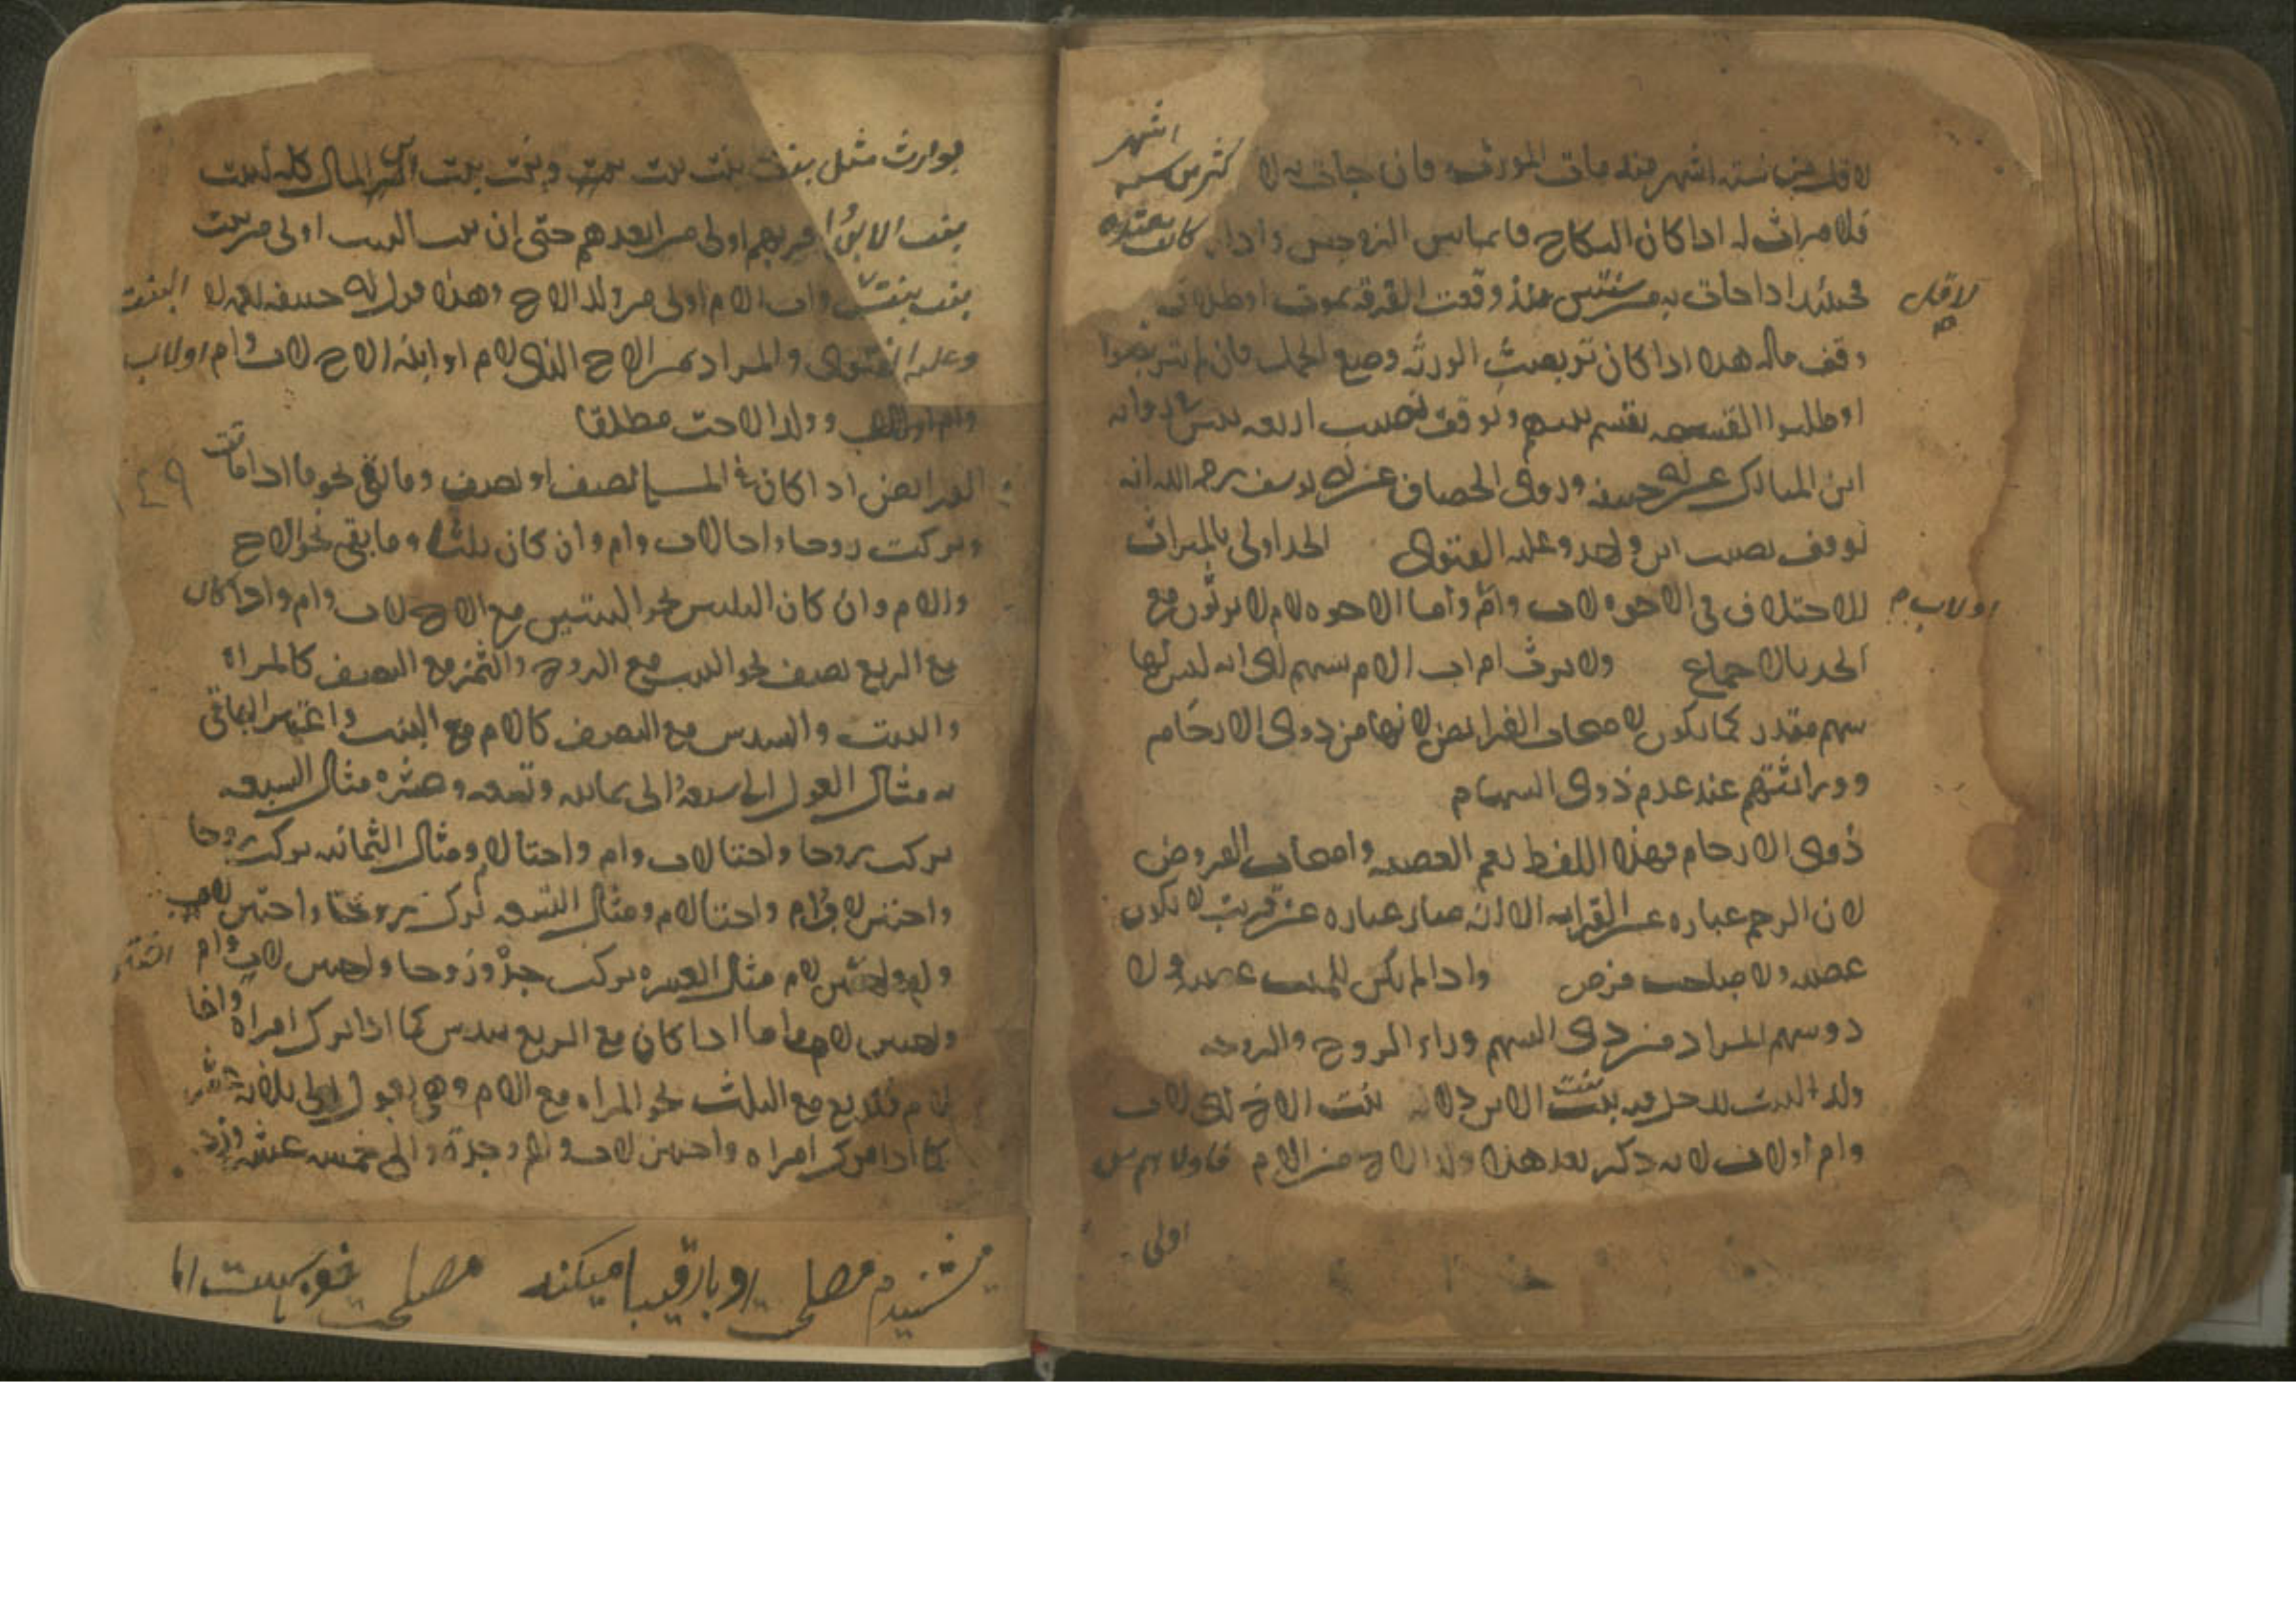 لاقل من ستة اشهر منذ مات المورث فان جات به لا كثر من ستة اشهر
فلا ميراث له اذا كان النكاح قايما بين الزوجين واذا كانت معتدة
فحينئذ اذا جات به من سنتين منذ وقعت الفرقة بموت او طلاق
لاقل
وقف ماله هذا اذا كان تربصت الورثة وضع الحمل فان لم يتربصوا
او طلبوا القسمة يقسم بينهم ويوقف نصيب اربعه بنين رواه
ابن المبارك عن ابي حنيفه وروى الخصاف عن ابي يوسف رحمه الله انه
يوقف نصيب ابن واحد وعليه الفتوى الجد اولى بالميراث
للاختلاف في الاخوه لاب وام واما الاخوه لام لا يرثون مع
او لاب
الجد بالاجماع ولا يرث ام اب الام بسهم اى انه ليس لها
سهم مقدر كما يكون لاصحاب الفرائض لانها من ذوى الارحام
وورائتهم عند عدم ذوى السهام
ذوى الارحام فهذا اللفظ يعم العصبه واصحاب الفروض
لان الرحم عباره عن القرابه الا انه صار عباره عن قريب لا يكون
عصبه ولا صاحب فرض واذا لم يكن للميت عصبه ولا
ذو سهم المراد من ذى السهم وراء الزوج والزوجه
ولد البنت يدخل فيه بنت بنت الابن دلاله بنت الاخ اى لاب
وام او لاب لانه ذكر بعد هذا ولد الاخ من الام فاولاهم من
اولى
بوارث مثل بنت بنت بنت بنت وبنت بنت ابن المال كله لبنت
بنت الابن واقربهم اولى من ابعدهم حتى ان بنت البنت اولى من بنت
بنت بنت واب الام اولى من ولد الاخ وهذا قول ابي حنيفه البنت
وعليه الفتوى والمراد من الاخ الذى لام او ابنة الاخ لاب وام او لاب
وام او لاب وولد الاخت مطلقا
الفرائض اذا كان في المسئلة نصف او نصف وما بقي نحو ما اذا ماتت
٤٩
وتركت زوجا واختا لاب وام وان كان ثلثا وما بقي نحو الاخ
والام وان كان الثلثين نحو البنتين مع الاخ لاب وام واذا كان
مع الربع نصف نحو البنت مع الزوج والثمن مع النصف كالمراة
والبنت والسدس مع النصف كالام مع البنت واعتبر الباقي
به مثال العول الى سبعه والى ثمانيه وتسعه وعشره مثال السبعه
تركت زوجا واختا لاب وام واختا لام ومثال الثمانيه تركت زوجا
واختين لاب وام واختا لام ومثال التسعه تركت زوجا واختين لاب
وام واختين لام مثال العشره تركت جدة وزوجا واختين لاب وام
واختين لام واما اذا كان مع الربع سدس كما اذا ترك امراة واخا
لام فالربع مع الثلث نحو المراه مع الام وهي تعول الى ثلاثة عشر
كما اذا ترك امراه واختين لاب وام وجدة والى خمسه عشر
میشنیدم مصلحت رو با رقیبا میکند مصلحت خوبست اما